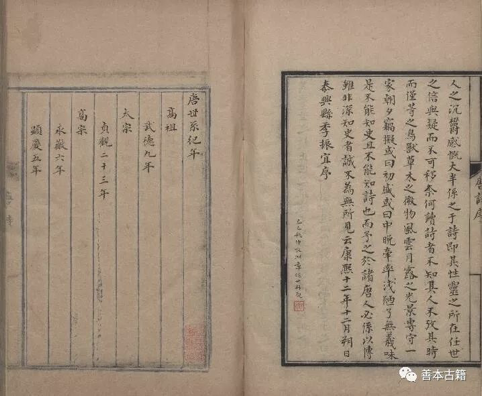 人之沉鬱感慨大半係之于詩即其性靈之所在任世
之信與疑而不可移奈何讀詩者不知其人不攷其時
而僅等之鳥獸草木之微物風雲月露之光景專守一
家朝夕竊擬或曰初盛或曰中晚牽率淺陋了無義味
是不能知史且不能知詩也而予之於諸唐人必係以傳
雖非深知史者誠不為無所見云康熙十二年十二月朔日
泰興縣季振宜序
唐世系紀年
高祖
武德九年
太宗
貞觀二十三年
高宗
永徽六年
顯慶五年
善本古籍